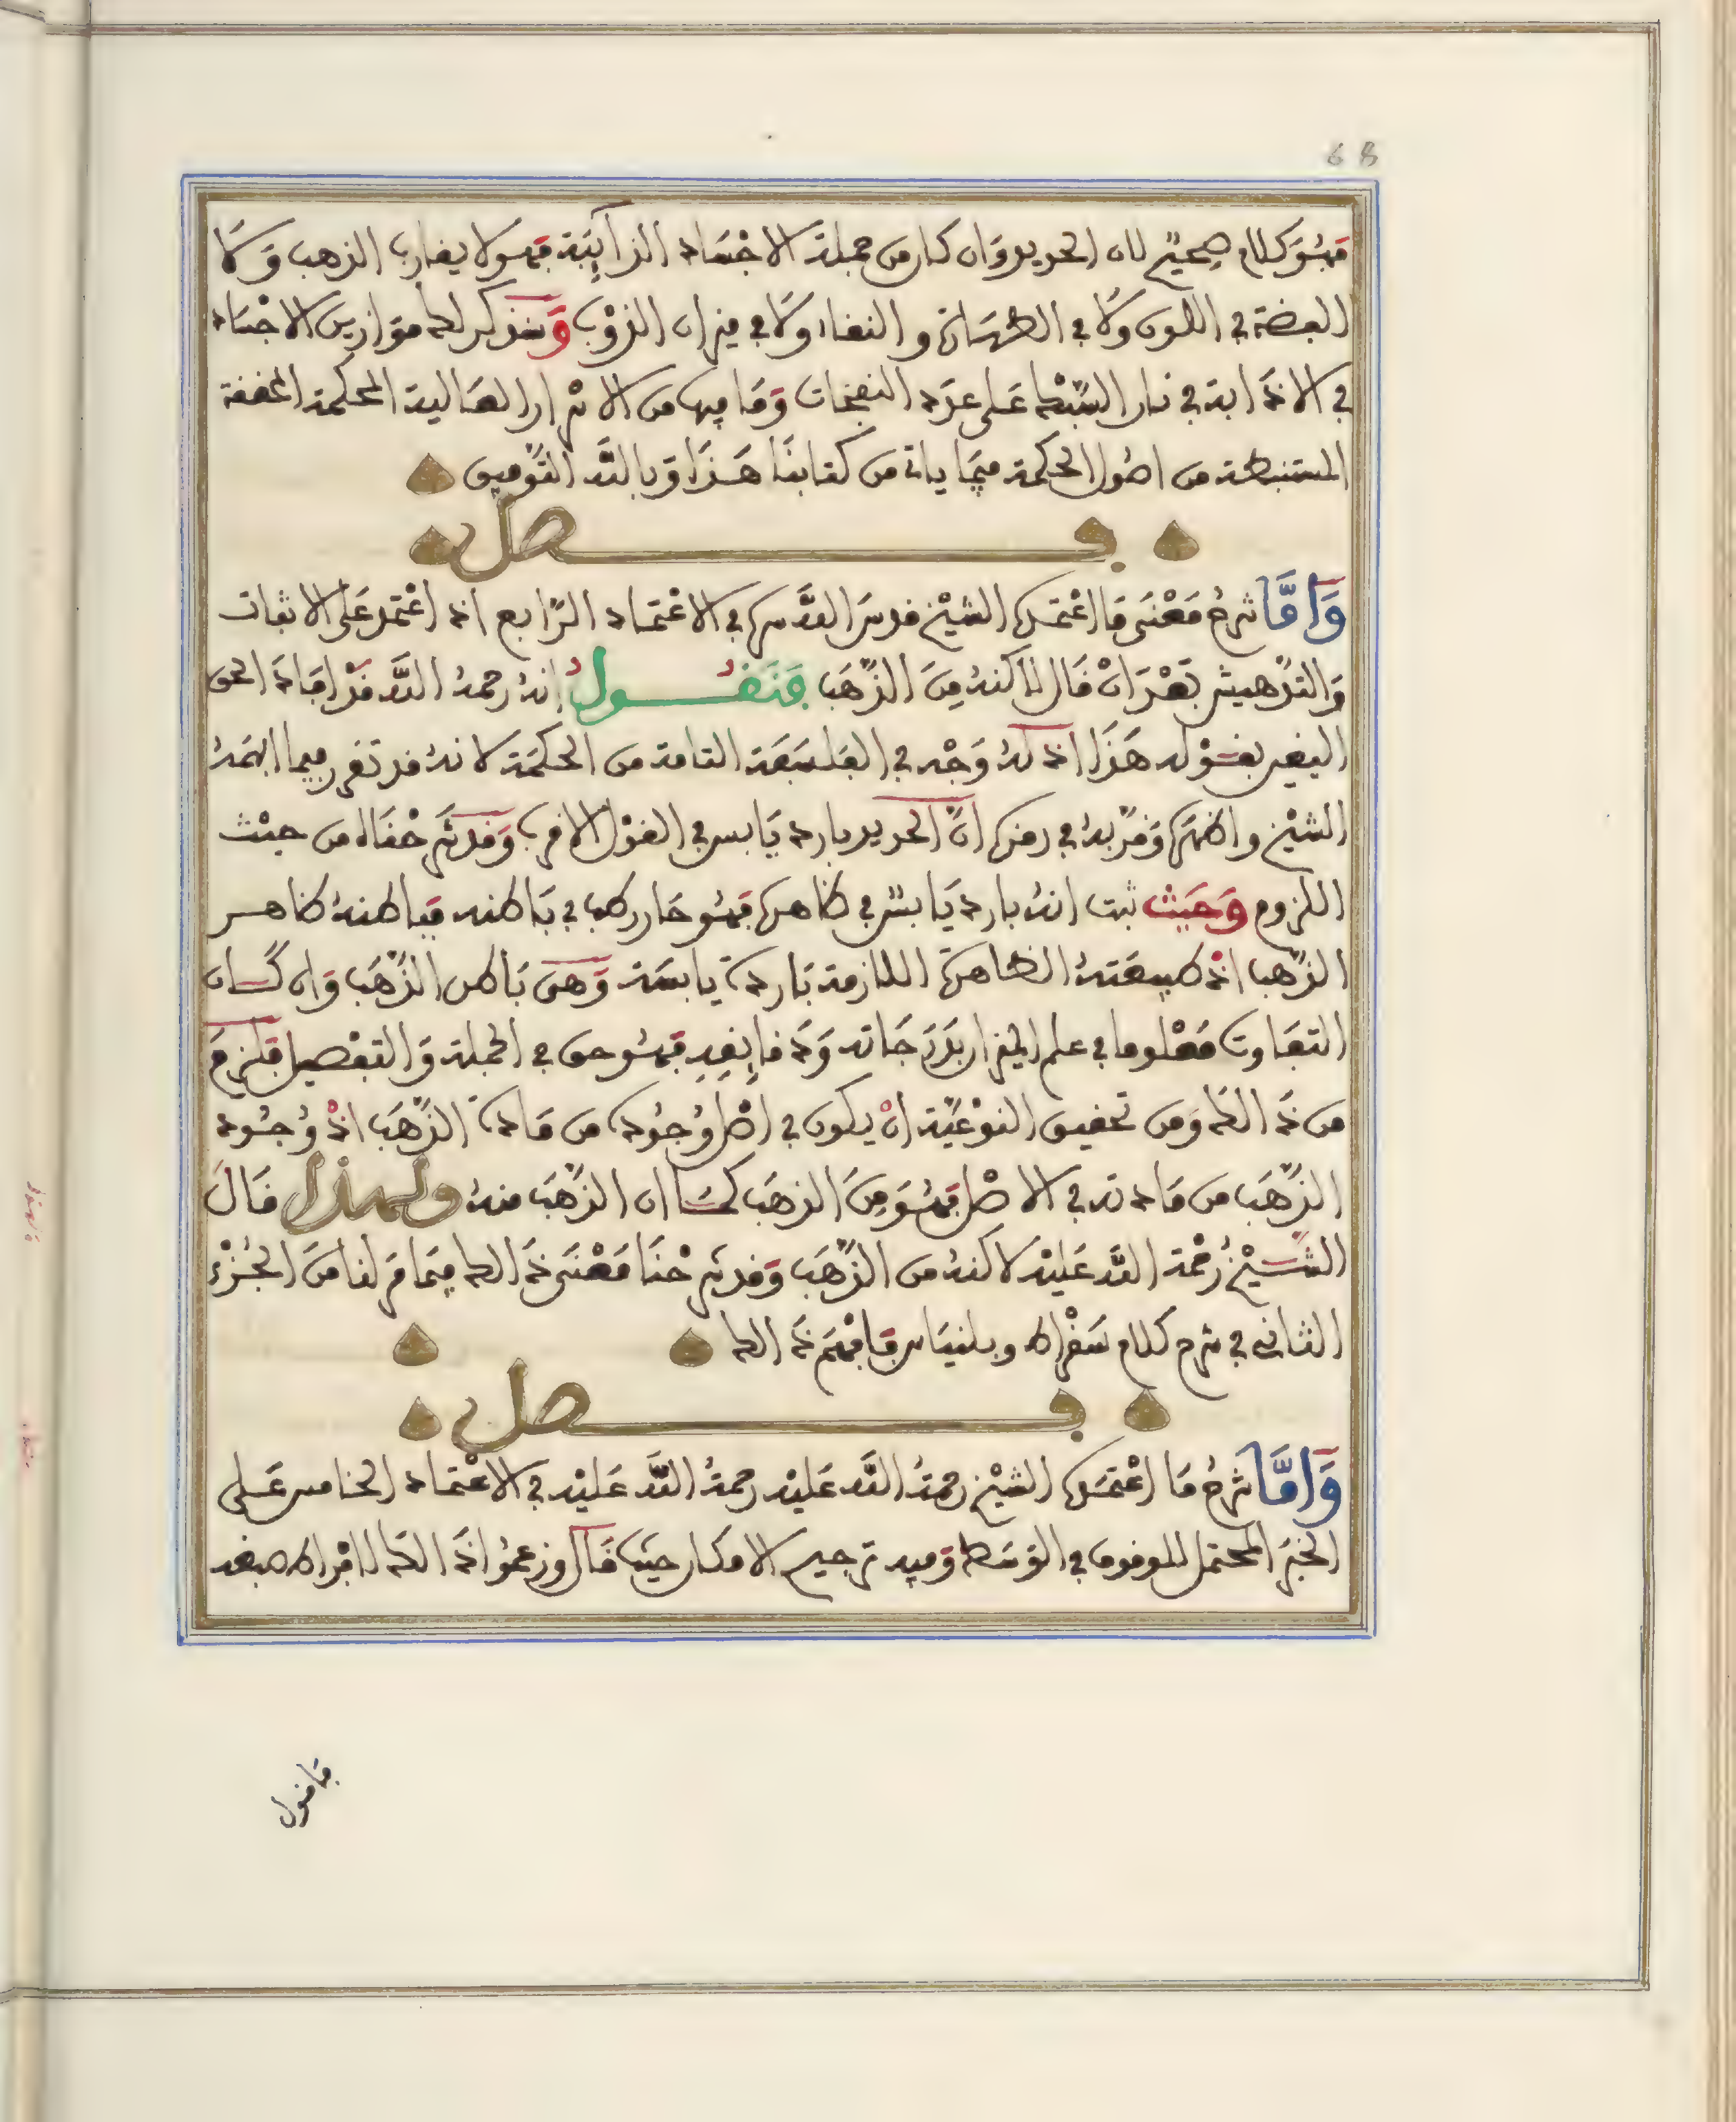 68
فَهُوَ كلام صحيح لان الحديد وَان كان من جملة الاجْسَاد الذآيِبَة فهو لا يقارب الذهب وَلَا
الفضة في اللون ولَا في الطهَارة والنقاء ولَا في ميزان الذوْب وَسنذكر لك موَازين الاجسَاد
في الاذابة في نار السَّبْك عَلى عدَد النفخات وَمَا فيها من الاسْرار العَالية المحكمة المحققة
المستنبطة من اصُول الحكمة فيمَا ياتي من كتابنَا هَذَا وَبالله التَّوْفيق
فصل
وَامَّا شرحُ مَعْنَى مَا اعْتمَدَه الشيْخ قدسَ الله سره في الاعْتمَاد الرَّابع اذ اعْتمد عَلَى الاثبات
وَالتدْهيش بَعْدَ انْ قَال لاكنهُ مِنَ الذَّهَب فَنَقُولُ انهُ رحمهُ الله قَدْ افَادَ الحق
اليقين بقَوْله هَذَا اذ لهُ وَجْه في الفلسَفَة التامة من الحكمَة لانهُ قد تقرر فيما ابهمَهُ
الشيْخ واظهَرَه وَقرَّبهُ في رمزه انَّ الحديد بارد يَابس في القوْل الاقرب وَقد شرَحْنَاه من حيْث
اللزوم وَحَيْث ثبت انهُ بارد يَابسٌ في ظاهره فهُو حَار رطب في بَاطنه فبَاطنهُ ظاهر
الذَّهب اذْ طبيعَتهُ الظاهرَة اللازمة بَاردَة يابسَة وَهيَ بَاطن الذَّهَب وَان كَان
التفَاوت مَعْلوما في علم الميزان بدَرَجَاته وَدَقايقِهِ فهُو حق في الجملة وَالتفْصيل فلزمَ
من ذَالك وَمن تحقيق النوْعيَّة انْ يكون في اصْل وُجُوده من مَادَة الذَّهَب اذْ وُجُود
الذَّهَب من مَادته في الاصْل فهُوَ مِنَ الذهَب كمَا ان الذَّهَب منهُ ولهذا قَالَ
الشيْخُ رَحْمة الله عَليْه لاكنهُ من الذَّهَب وَقد شرَحْنَا مَعْنَى ذَالك فيمَا مَر لنا منَ الجُزْء
الثاني في شرح كلام سَقْراط وبلنيَاس فَافْهَم ذَالك
فصل
وَامَّا شرحُ مَا اعْتمَده الشيْخ رحمَةُ الله عَليْه رحمةُ الله عَليْه في الاعْتماد الخامس عَلى
الخبَر المحتمل للوقوف في الوَسَط وَفيه ترجيح الامكان حيْث قَال وزعموُا ذَالك لافْراط صبغه
فافول